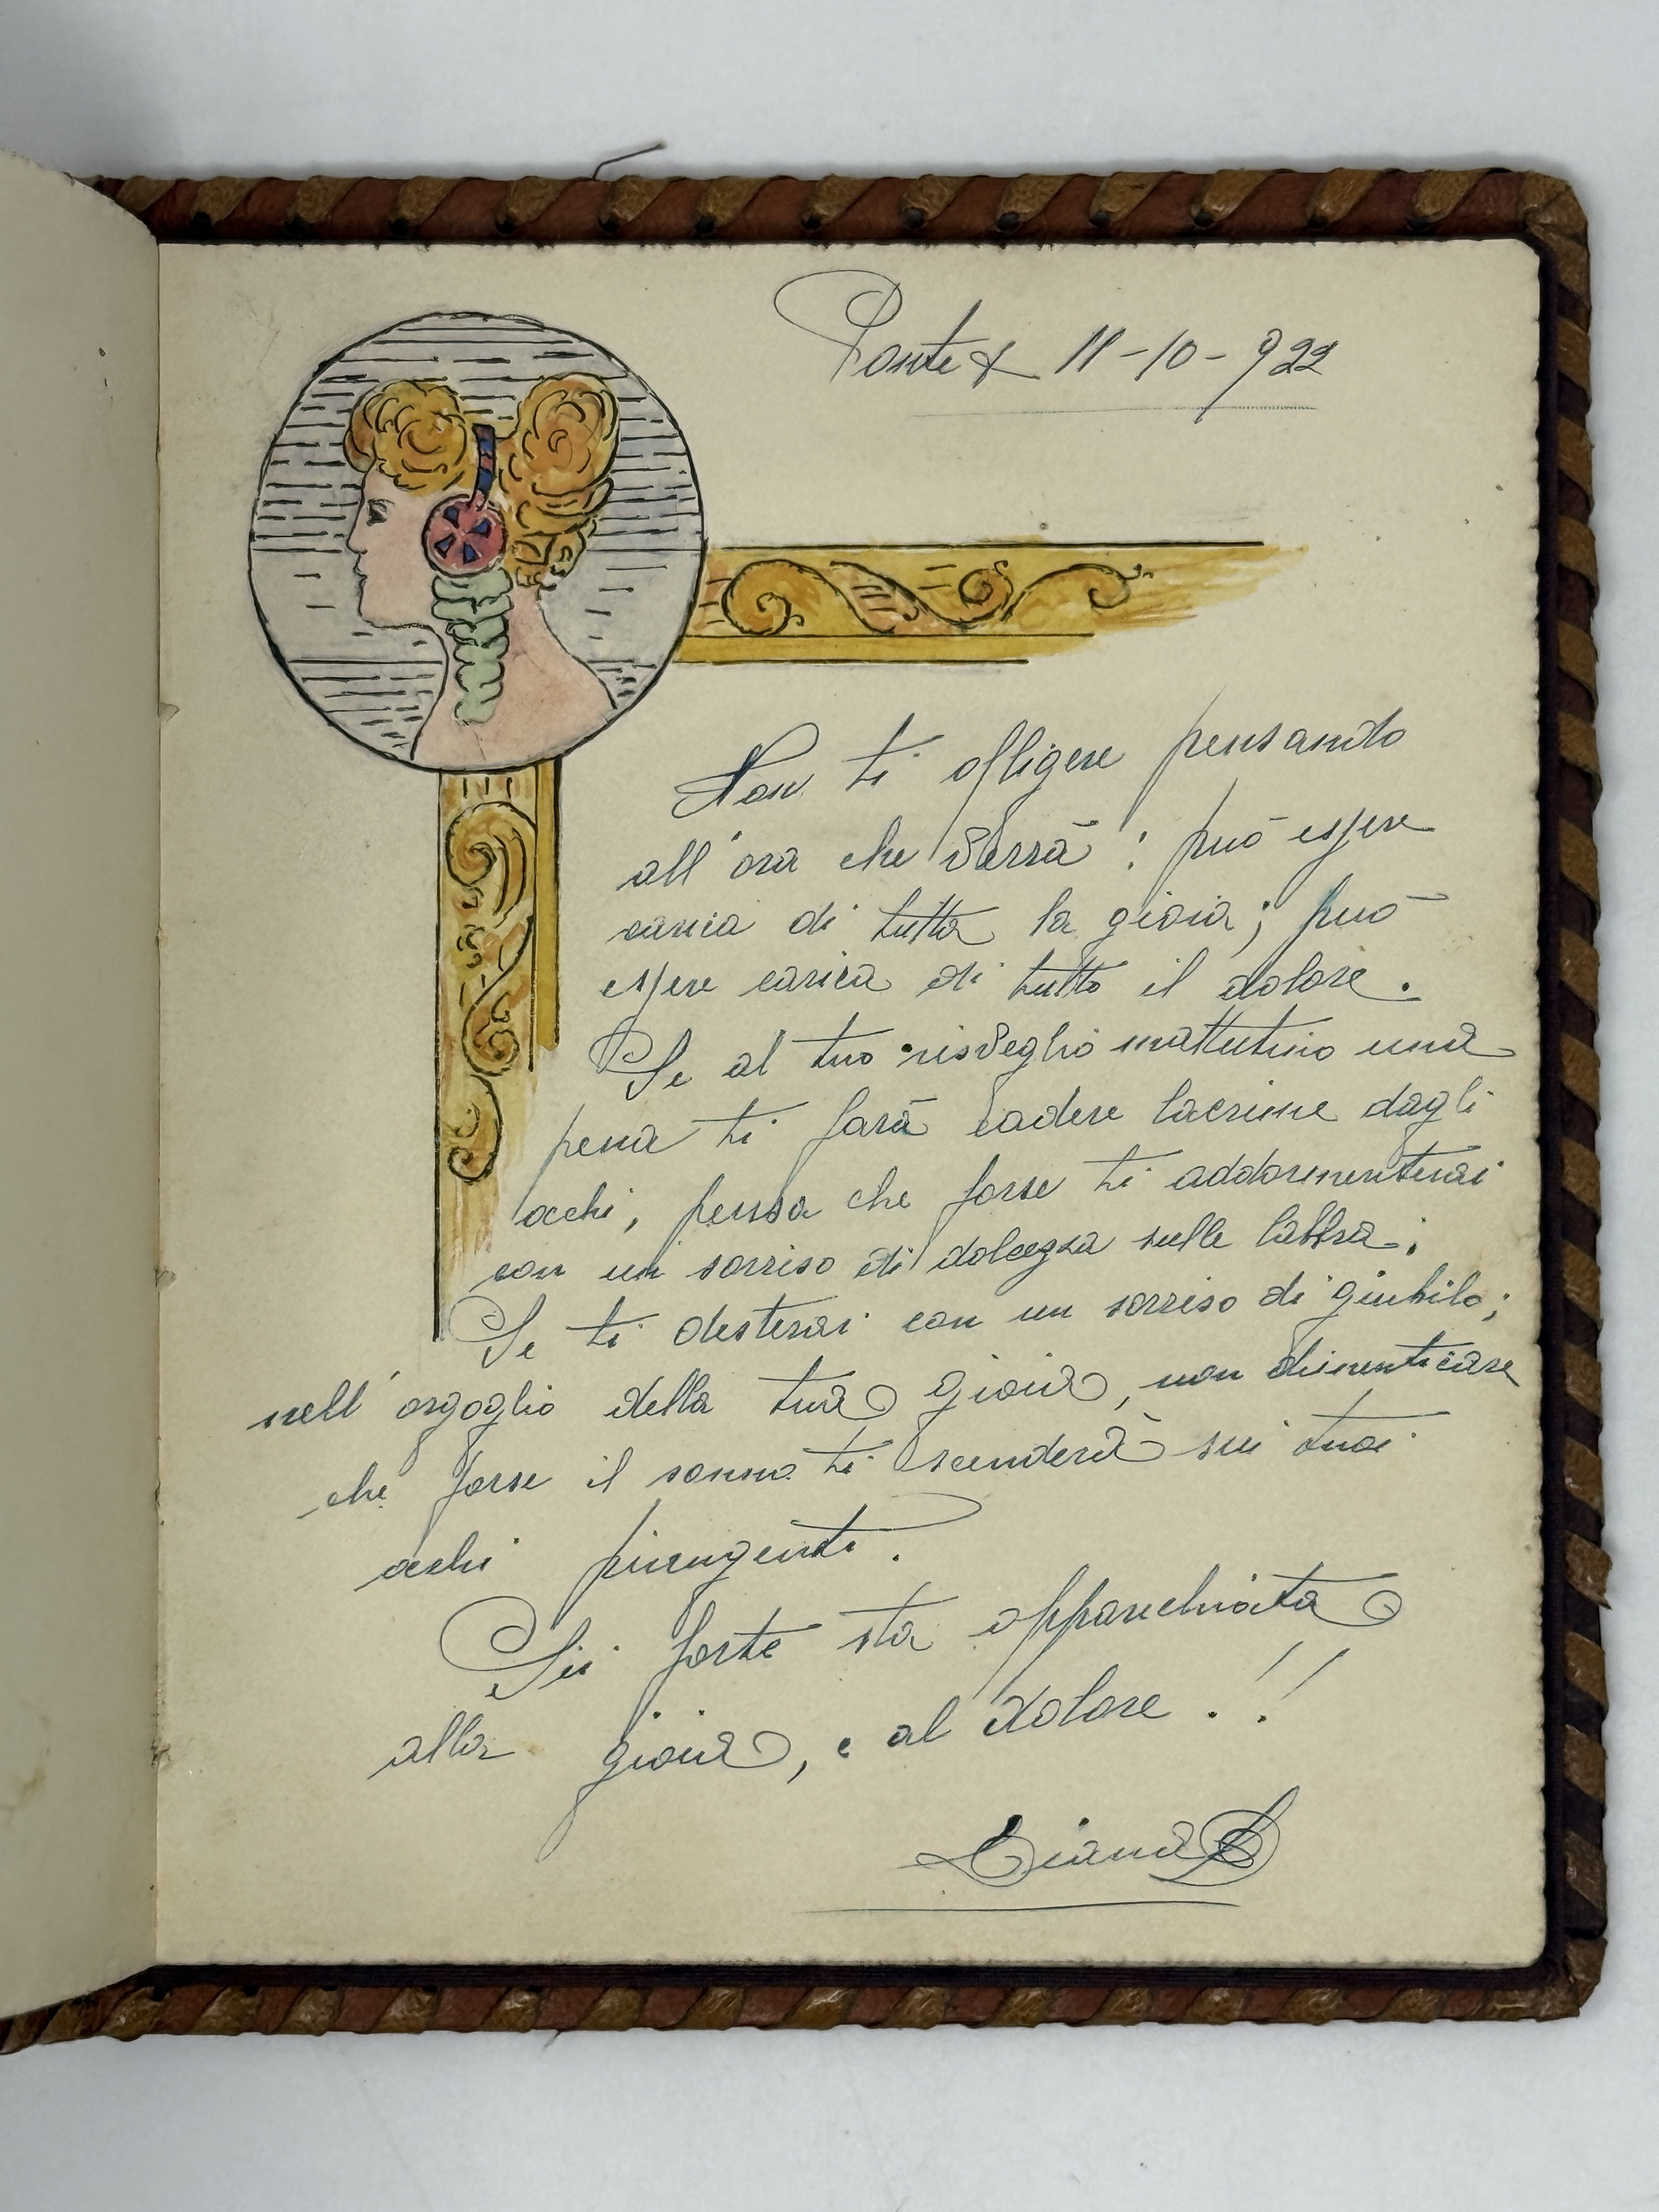 Ponte X 11-10-922
Non ti affligere pensando
all'ora che verrà: può essere
carica di tutta la gioia; può
essere carica di tutto il dolore.
Se al tuo risveglio mattutino una
pena ti farà cadere lacrime dagli
occhi, pensa che forse ti addormenterai
con un sorriso di dolcezza sulle labbra;
Se ti desterai con un sorriso di giubilo;
nell'orgoglio della tua gioia, non dimenticare
che forse il sonno ti scenderà sui tuoi
occhi piangenti.
Sii forte sta apparechiata
alla gioia, e al dolore.!!